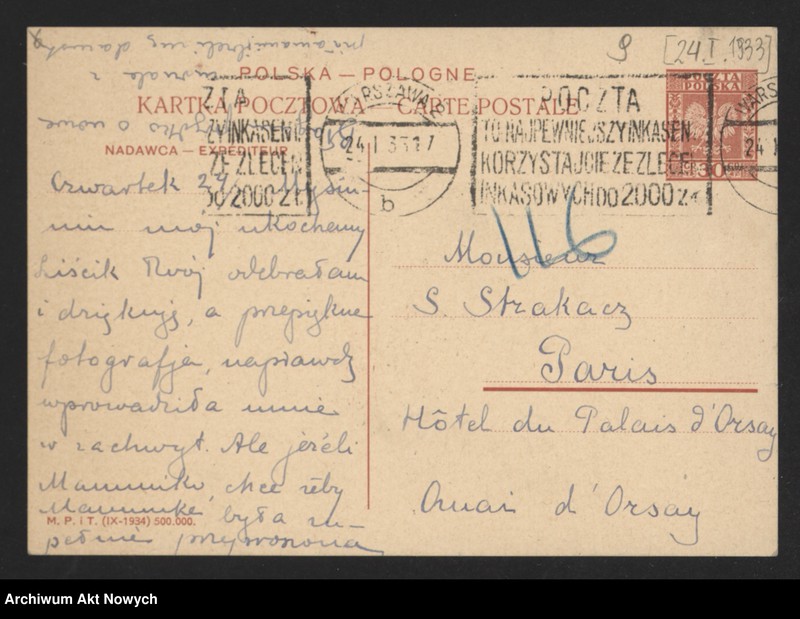 9 [24.I.1933]
POLSKA — POLOGNE
KARTKA POCZTOWA — CARTE POSTALE
NADAWCA — EXPÉDITEUR
POCZTA
POLSKA
30
WARSZAWA
24.I.33 17
b
ZTA
ZYINKASENT
ZE ZLECEŃ
DO 2000 ZŁ
POCZTA
TO NAJPEWNIEJSZYINKASENT
KORZYSTAJCIE ZE ZLECEŃ
INKASOWYCH DO 2000 ZŁ
WARS
24.I
116
Czwartek
mój ukochany
Liścik Twój odebrałam
i dziękuję, a przepiękna
fotografja, naprawdę
wprowadziła mnie
w zachwyt. Ale jeżeli
Mamunko, chce żeby
Mamunka, była zu-
pełnie
M. P. i T. (IX-1934) 500.000.
Monsieur
S. Strakacz
Paris
Hôtel du Palais d'Orsay
Quai d'Orsay
Archiwum Akt Nowych